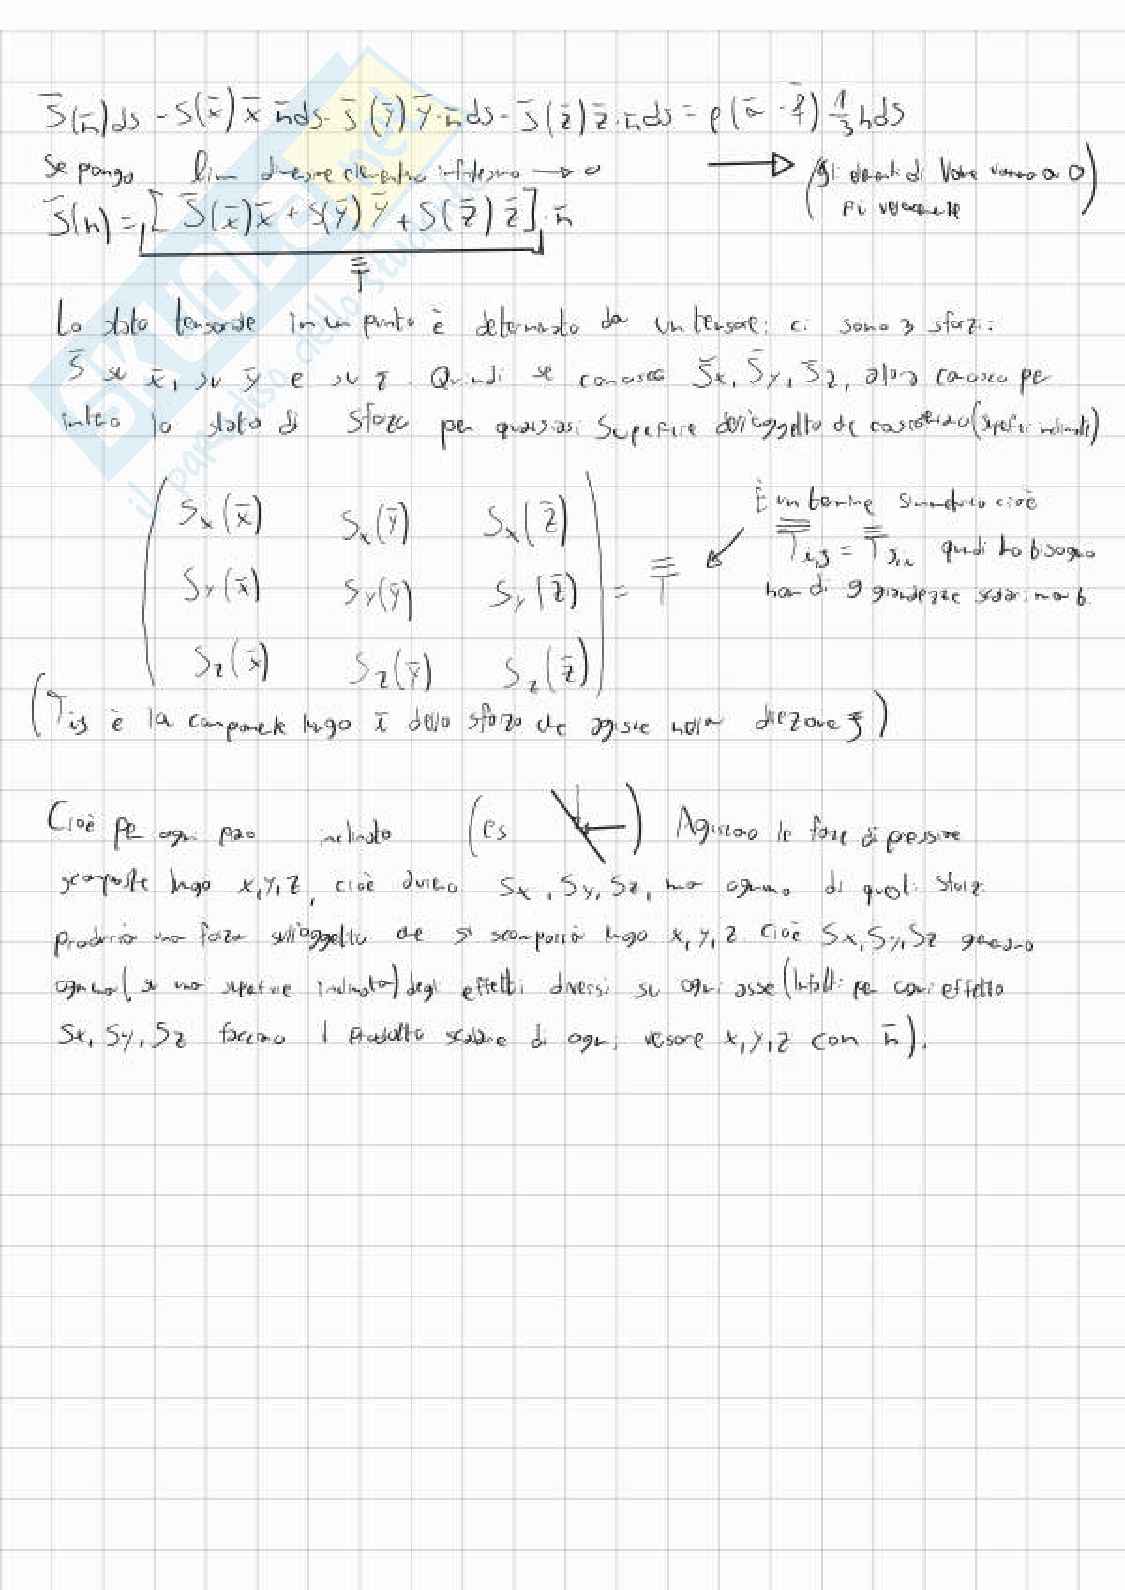 S̄(n̄)ds - S(x̄) x̄ n̄ds - S̄(ȳ) ȳ·n̄ds - S̄(z̄) z̄·n̄ds = ρ(ā - f̄) 1/3 hds
Se pongo lim dimensione elementino infinitesimo → 0
(Gli elementi di Volume vanno a 0
più velocemente)
S̄(n) = [S̄(x̄)x̄ + S(ȳ)ȳ + S(z̄)z̄]·n̄
T
Lo stato tensoriale in un punto è determinato da un tensore; ci sono 3 sforzi:
S̄ su x̄, su ȳ e su z̄. Quindi se conosco S̄x, S̄y, S̄z, allora conosco per
intero lo stato di sforzo per qualsiasi superficie dell'oggetto che considero (superfici inclinate)
Sx(x̄) Sx(ȳ) Sx(z̄)
Sy(x̄) Sy(ȳ) Sy(z̄) = T
Sz(x̄) Sz(ȳ) Sz(z̄)
È un termine simmetrico cioè
Ti,j = Tj,i quindi ho bisogno
non di 9 grandezze scalari ma 6.
(Tij è la componente lungo ī dello sforzo che agisce nella direzione j̄)
Cioè per ogni piano inclinato (es ) Agiscono le forze di pressione
scomposte lungo x,y,z, cioè avremo Sx, Sy, Sz, ma ognuno di questi sforzi
produrrà una forza sull'oggetto che si scomporrà lungo x, y, z cioè Sx, Sy, Sz generano
ognuno (su una superficie inclinata) degli effetti diversi su ogni asse (Infatti per ogni effetto
Sx, Sy, Sz facciamo il prodotto scalare di ogni versore x,y,z con n̄).
SKUOLA.net
il paradiso dello studente